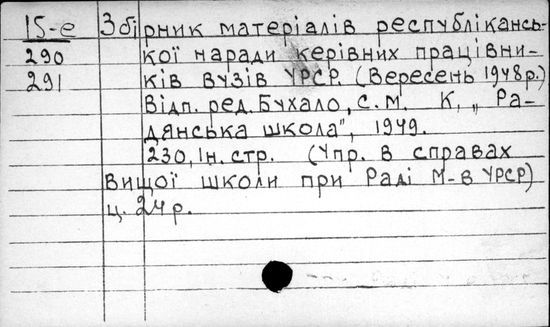 15-е Збірник матеріалів республікансь-
290 кої наради керівних працівни-
291 ків вузів УРСР. (Вересень 1948р.)
Відп. ред. Бухало, С.М. К, „Ра-
дянська школа", 1949.
230, Ін. стр. (Упр. в справах
Вищої школи при Раді М-в УРСР)
ц. 24р.